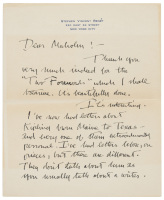 Dear Malcolm! —
Thank you
very much indeed for the
"Two Poems" which I shall
treasure. It's beautifully done.
It's interesting.
I've now had letters about
Kipling from Maine to Texas —
and every one of them extraordinarily
personal. I've had letters before, on
pieces; but these are different.
They don't talk about him as
you usually talk about a writer.